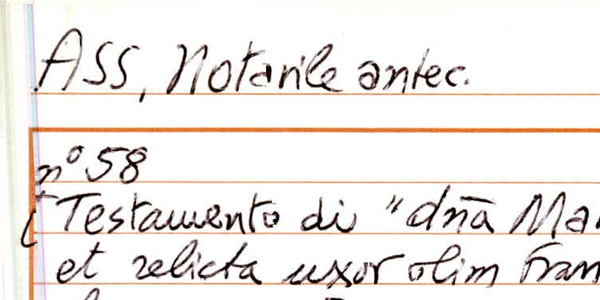 ASS, Notarile antec.
n° 58
[Testamento di "dña
et relicta uxor olim